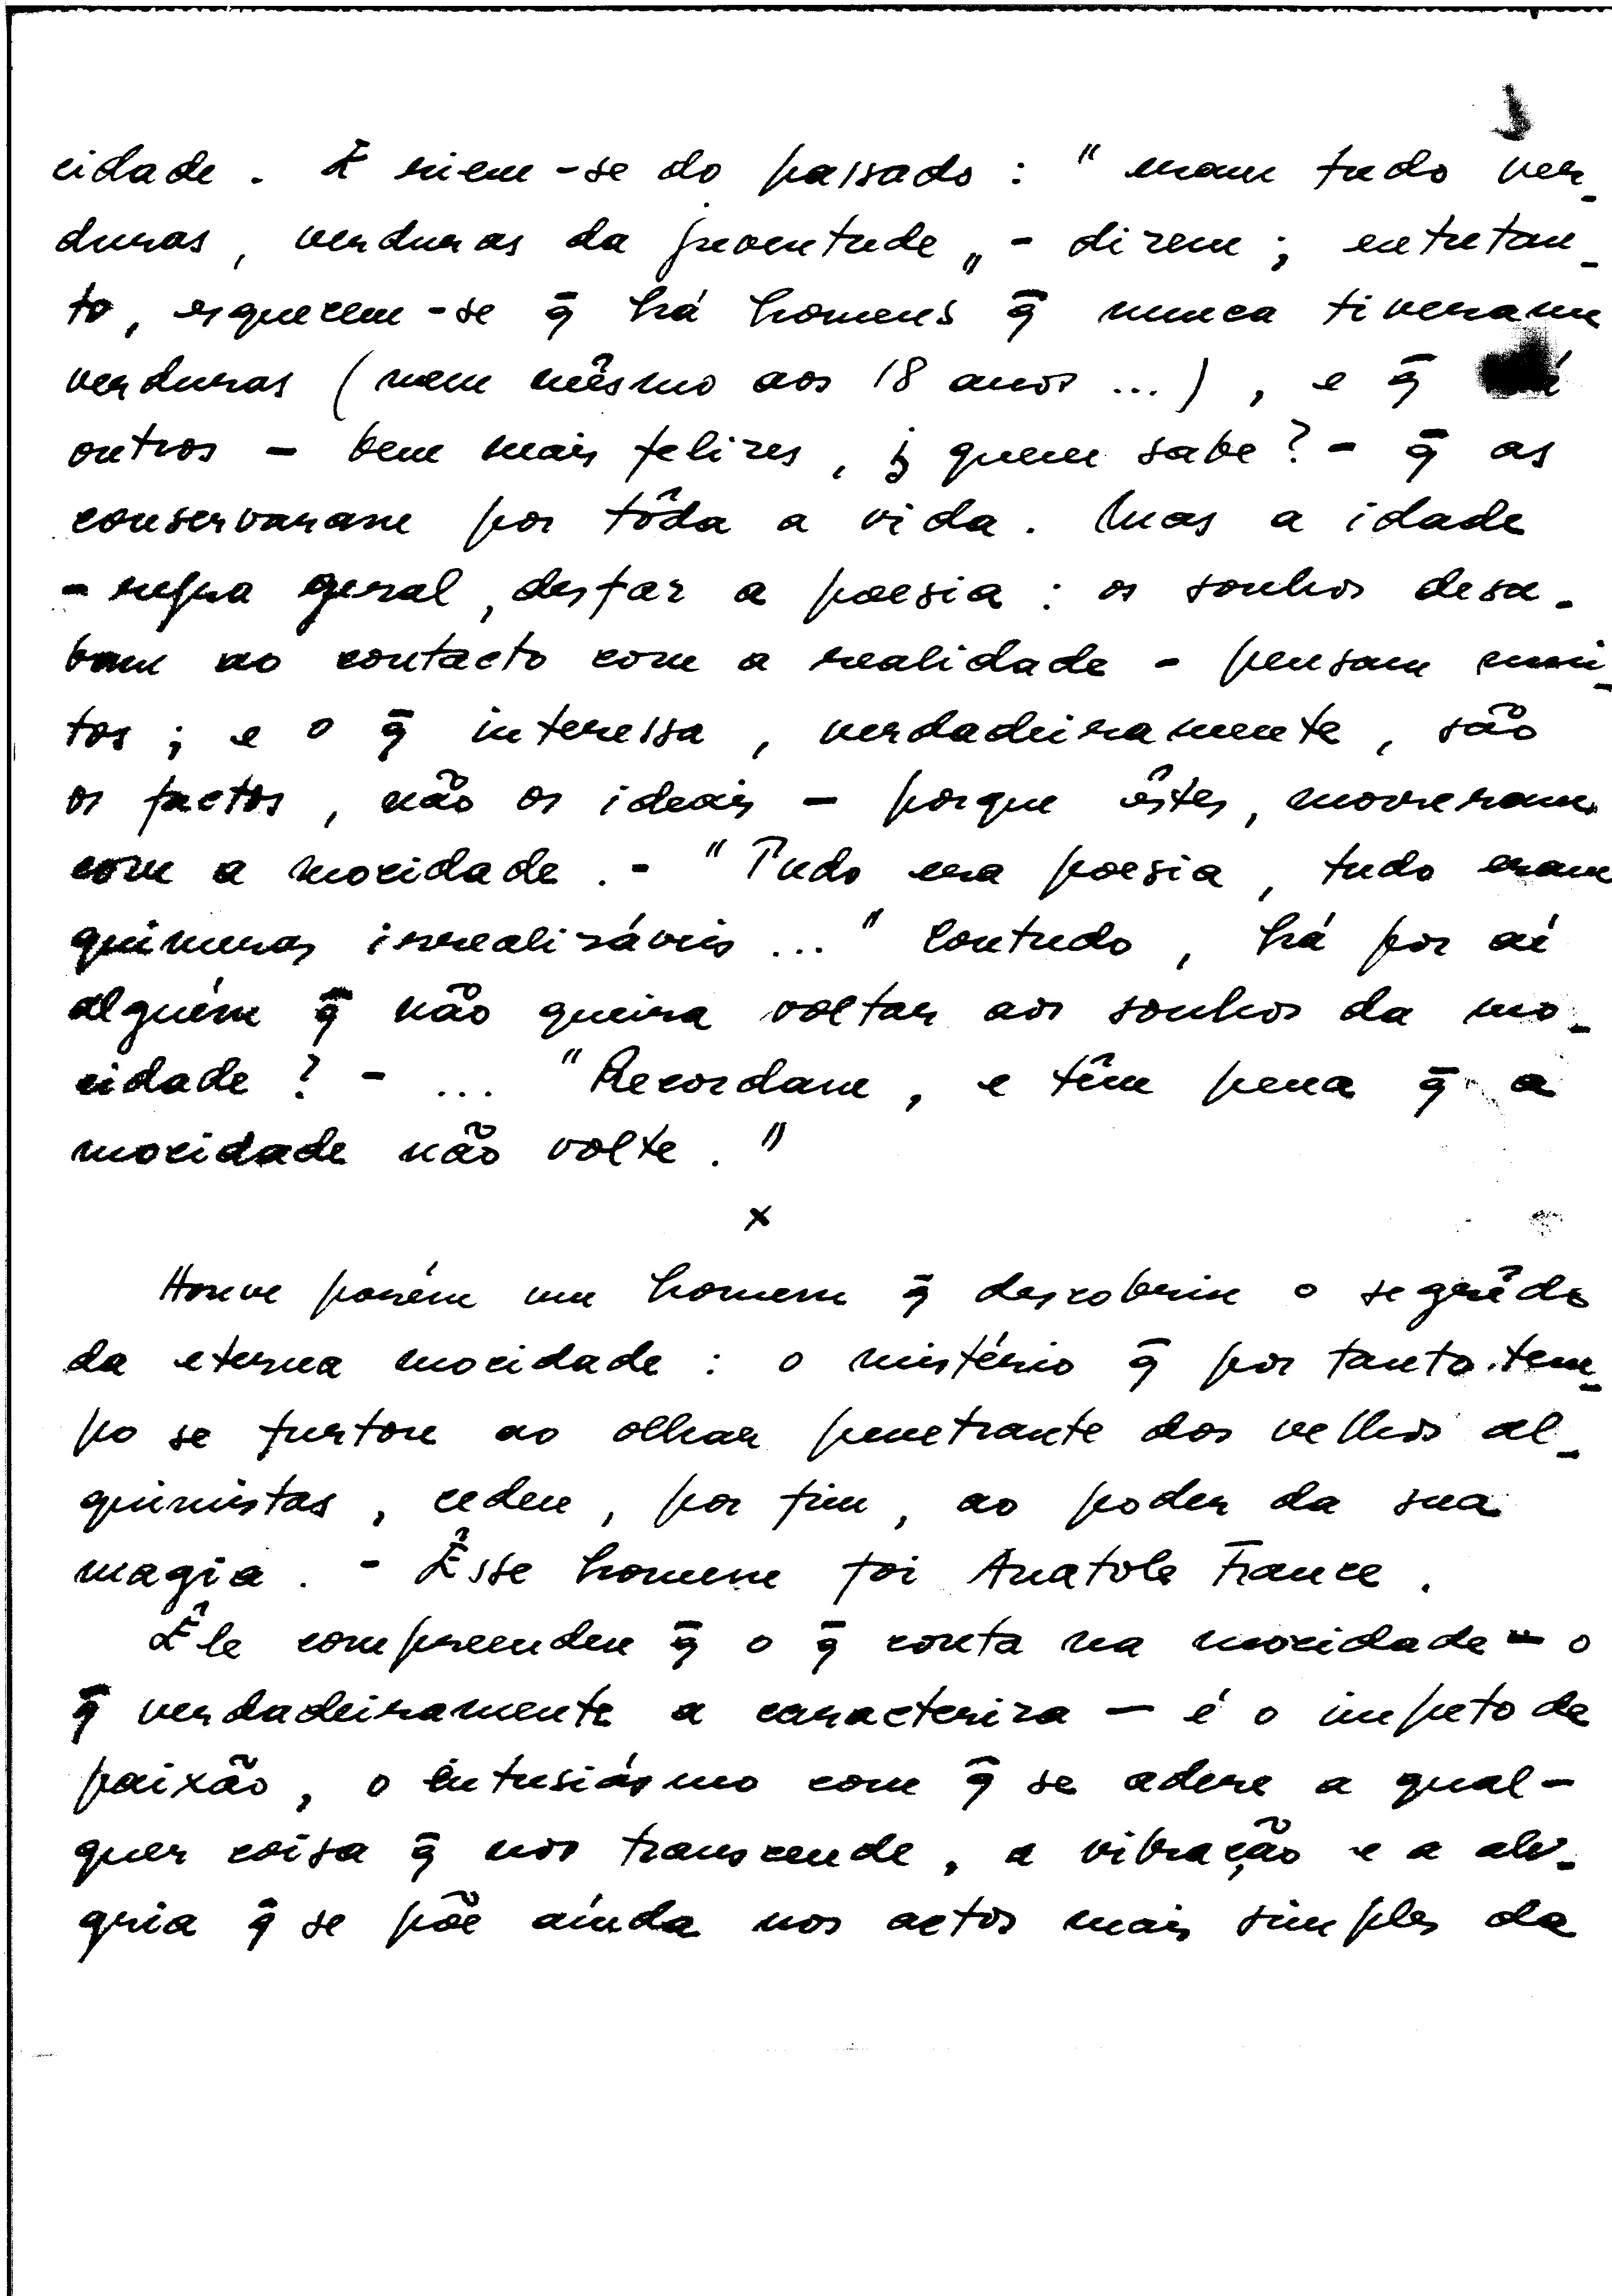 cidade. E riem-se do passado: "eram tudo ver-
duras, verduras da juventude„ - dizem; entretan-
to, esquecem-se q̄ há homens q̄ nunca tiveram
verduras (nem mêsmo aos 18 anos ...), e q̄
outros - bem mais felizes, ¿ quem sabe? - q̄ as
conservaram por tôda a vida. Mas a idade
- regra geral, desfaz a poesia: os sonhos desa-
bam ao contacto com a realidade - pensam mui-
tos; e o q̄ interessa, verdadeiramente, são
os factos, não os ideais - porque êstes, morreram
com a mocidade. - "Tudo era poesia, tudo eram
quimeras irrealizáveis ..." Contudo, há por aí
alguém q̄ não queira voltar aos sonhos da mo-
cidade? - ... "Recordam, e têm pena q̄ a
mocidade não volte."
x
Houve porém um homem q̄ descobriu o segrêdo
da eterna mocidade: o mistério q̄ por tanto tem-
po se furtou ao olhar penetrante dos velhos al-
quimistas, cedeu, por fim, ao poder da sua
magia. - Êsse homem foi Anatole France.
Êle compreendeu q̄ o q̄ conta na mocidade - o
q̄ verdadeiramente a caracteriza - é o impeto de
paixão, o entusiásmo com q̄ se adere a qual-
quer coisa q̄ nos transcende, a vibração e a ale-
gria q̄ se põe aínda nos actos mais simples da